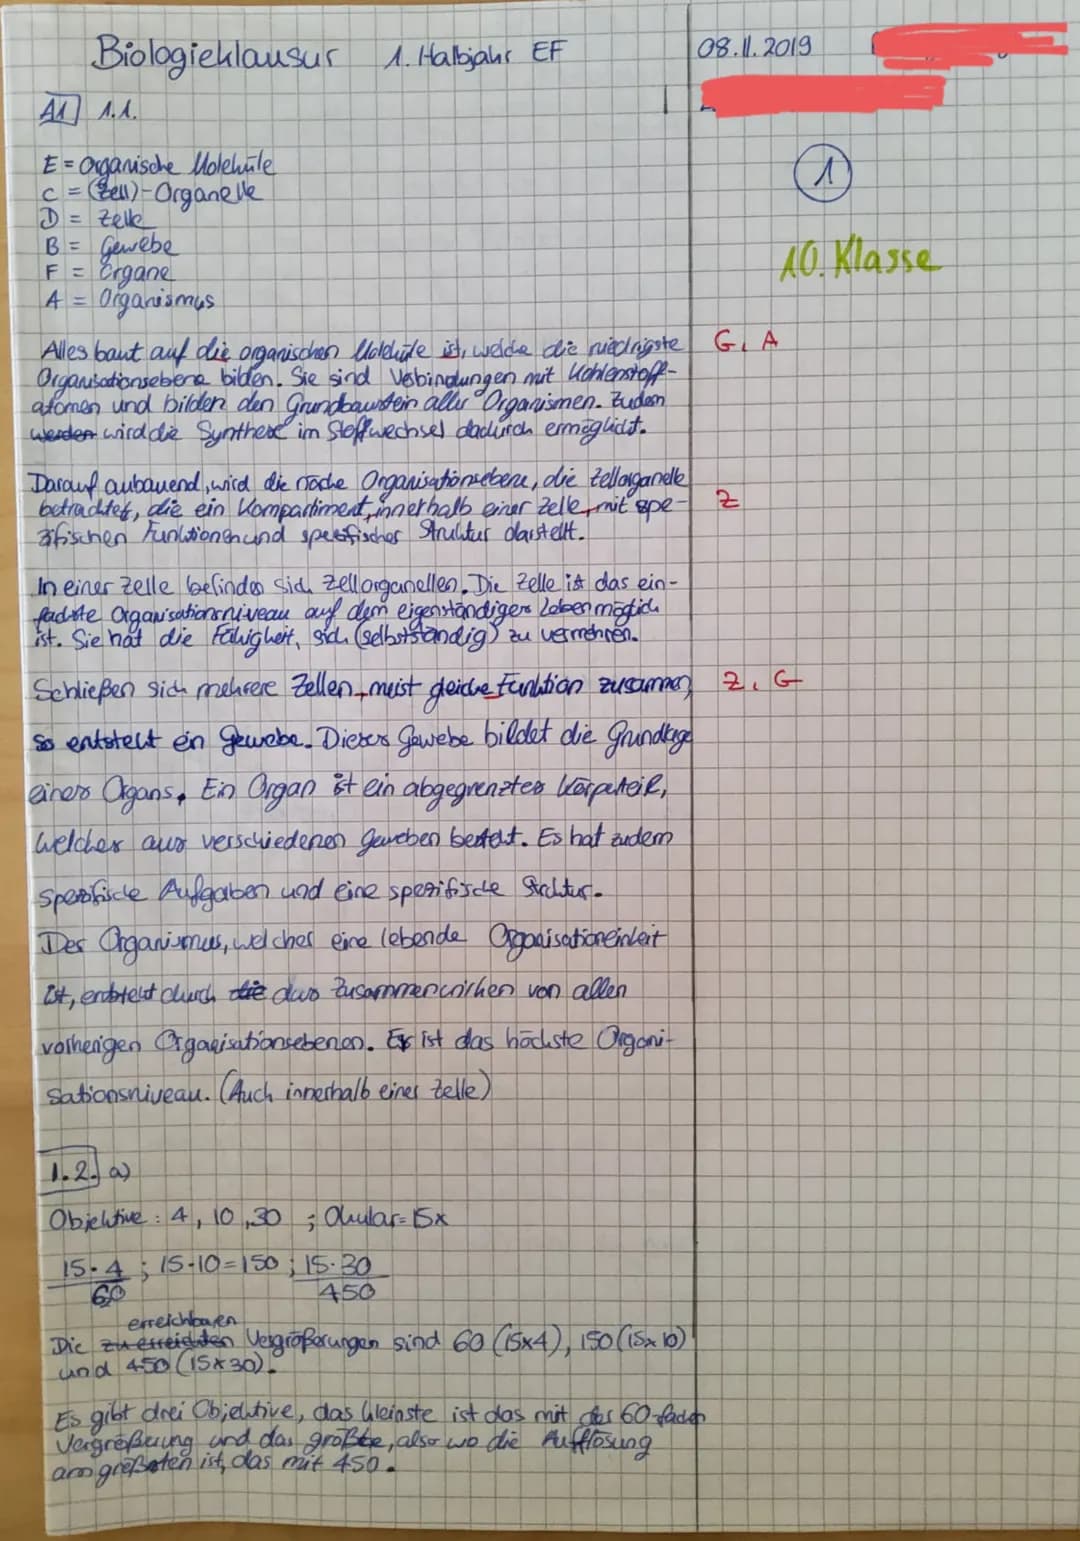 Biologieklausur 1. Halbjahr EF 08.11.2019
A1 1.1.
E = Organische Moleküle
C = (Zell)-Organelle
D = Zelle
B = Gewebe
F = Organe
A = Organismus
1
10. Klasse
Alles baut auf die organischen Moleküle ist, welche die niedrigste G, A
Organisationsebene bilden. Sie sind Verbindungen mit Kohlenstoff-
atomen und bilden den Grundbaustein aller Organismen. Zudem
werden wird die Synthese im Stoffwechsel dadurch ermöglicht.
Darauf aubauend, wird die näche Organisationsebene, die Zellorganelle
betrachtet, die ein Kompartiment, innerhalb einer Zelle, mit spe- Z
zifischen Funktionen und spezifischer Struktur darstellt.
In einer Zelle befinden sich Zellorganellen. Die Zelle ist das ein-
fachste Organisationsniveau auf dem eigenständiges Leben möglich
ist. Sie hat die Fähigkeit, sich (selbstständig) zu vermehren.
Schließen sich mehrere Zellen, meist gleiche Funktion zusammen, Z, G
so entsteht ein Gewebe. Dieses Gewebe bildet die Grundlage
eines Organs. Ein Organ ist ein abgegrenztes Körperteil,
welches aus verschiedenen Geweben besteht. Es hat zudem
spezifische Aufgaben und eine spezifische Struktur.
Der Organismus, welcher eine lebende Organisationeinheit
ist, entsteht durch die das Zusammenwirken von allen
vorherigen Organisationsebenen. Es ist das höchste Organi-
sationsniveau. (Auch innerhalb einer Zelle)
1.2. a)
Objektive : 4, 10, 30 ; Okular = 15x
15·4 ; 15·10=150 ; 15·30
60 450
erreichbaren
Die zu erreichten Vergrößerungen sind 60 (15x4), 150 (15x10)
und 450 (15x30).
Es gibt drei Objektive, das kleinste ist das mit der 60-fachen
Vergrößerung und das größte, also wo die Aufflösung
am größten ist, das mit 450.